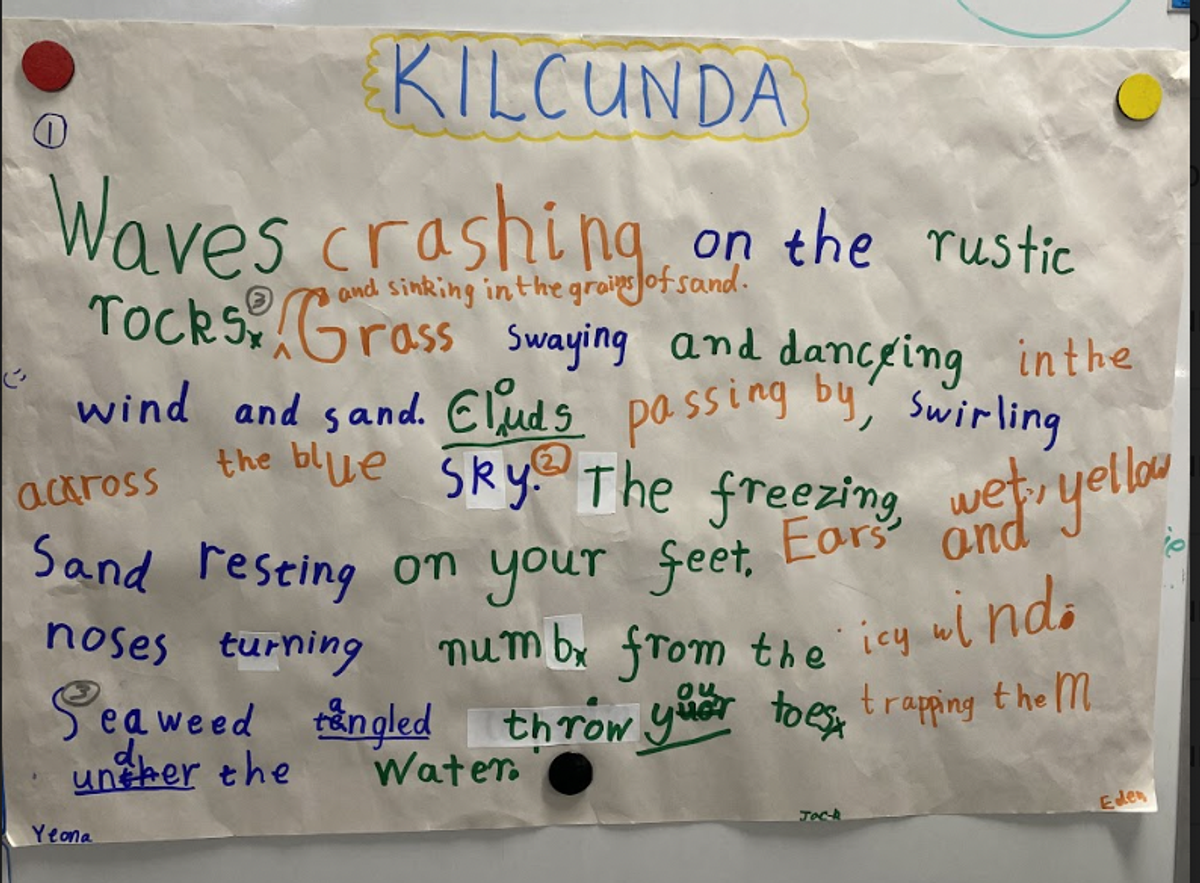 KILCUNDA
①
Waves crashing on the rustic
and sinking in the grains of sand.
rocks. ③ Grass swaying and dancing in the
wind and sand. Clouds passing by, swirling
across the blue sky. ② The freezing, wet, yellow
Sand resting on your feet. Ears and
noses turning numb from the icy wind.
③ Seaweed tangled throw your toes trapping them
under the Water.
Yeona Jac-R Eden